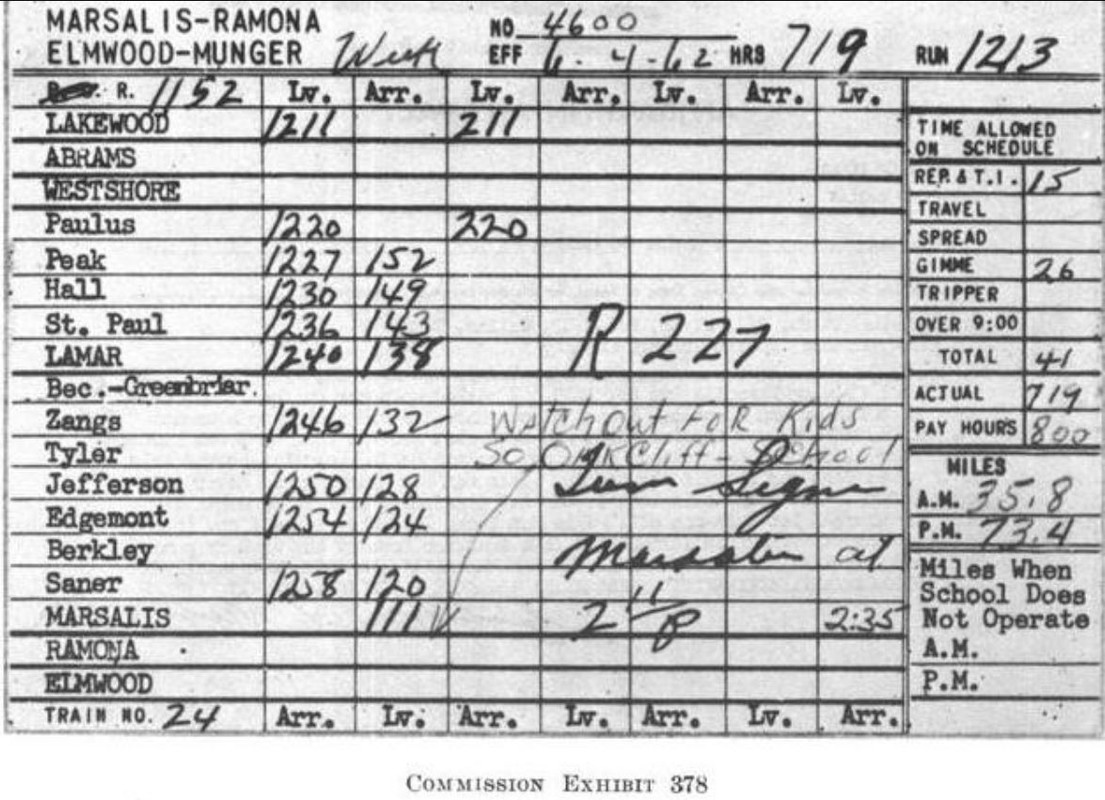 MARSALIS-RAMONA NO 4600
ELMWOOD-MUNGER Week EFF 6-4-62 HRS 719 RUN 1213
R. 1152 Lv. Arr. Lv. Arr. Lv. Arr. Lv.
LAKEWOOD 1211 211
ABRAMS
WESTSHORE
Paulus 1220 220
Peak 1227 152
Hall 1230 149
St. Paul 1236 143
LAMAR 1240 138 R 227
Bec.-Greenbriar.
Zangs 1246 132 Watch out FOR Kids
Tyler So. Oak Cliff-School
Jefferson 1250 128 Turn Signs
Edgemont 1254 124
Berkley Marsalis at
Saner 1258 120
MARSALIS 111 2 11 P 2:35
RAMONA
ELMWOOD
TRAIN NO. 24 Arr. Lv. Arr. Lv. Arr. Lv. Arr.
TIME ALLOWED
ON SCHEDULE
REP. & T.I. 15
TRAVEL
SPREAD
GIMME 26
TRIPPER
OVER 9:00
TOTAL 41
ACTUAL 719
PAY HOURS 800
MILES
A.M. 35.8
P.M. 73.4
Miles When
School Does
Not Operate
A.M.
P.M.
COMMISSION EXHIBIT 378